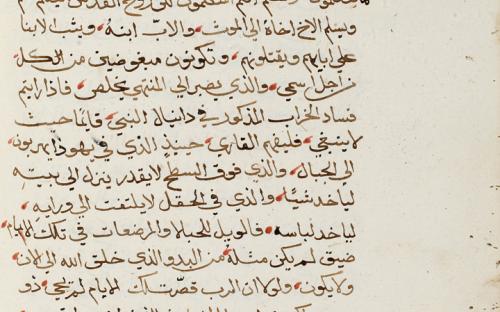 ويسلم الاخ اخاة الي الموت والاب ابنة ويثب الابنا
علي ابايهم ويقتلونهم وتكونون مبغوضين من الكل
من اجل اسمي والذي يصبر الي المنتهي يخلص فاذا رايتم
فساد الخراب المذكور في دانيال النبي قايما حيث
لا ينبغي فليفهم القاري حينيذ الذي في يهودا يهربون
الي الجبال والذي فوق السطح لا يقدر ينزل الي بيته
لياخد شيًا والذي في الحقل لا يلتفت الي ورايه
لياخد لباسه فالويل للحبالا والمرضعات في تلك الايام
ضيق لم يكن مثلة من البدو الذي خلق الله الي الان
ولا يكون ولولا ان الرب قصر تلك الايام لم يحيي ذو